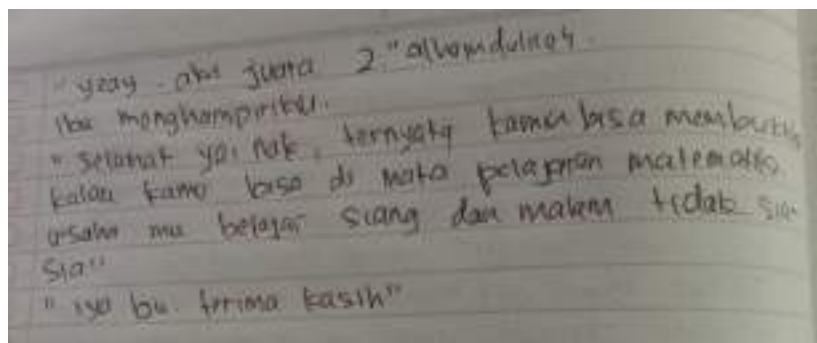 "yeay. aku juara 2" alhamdulilah.
Ibu menghampiriku.
"Selamat ya, nak, ternyata kamu bisa membukti
kalau kamu bisa di mata pelajaran matematika.
usaha mu belajar siang dan malam tidak sia-
sia"
"iya bu. terima kasih"